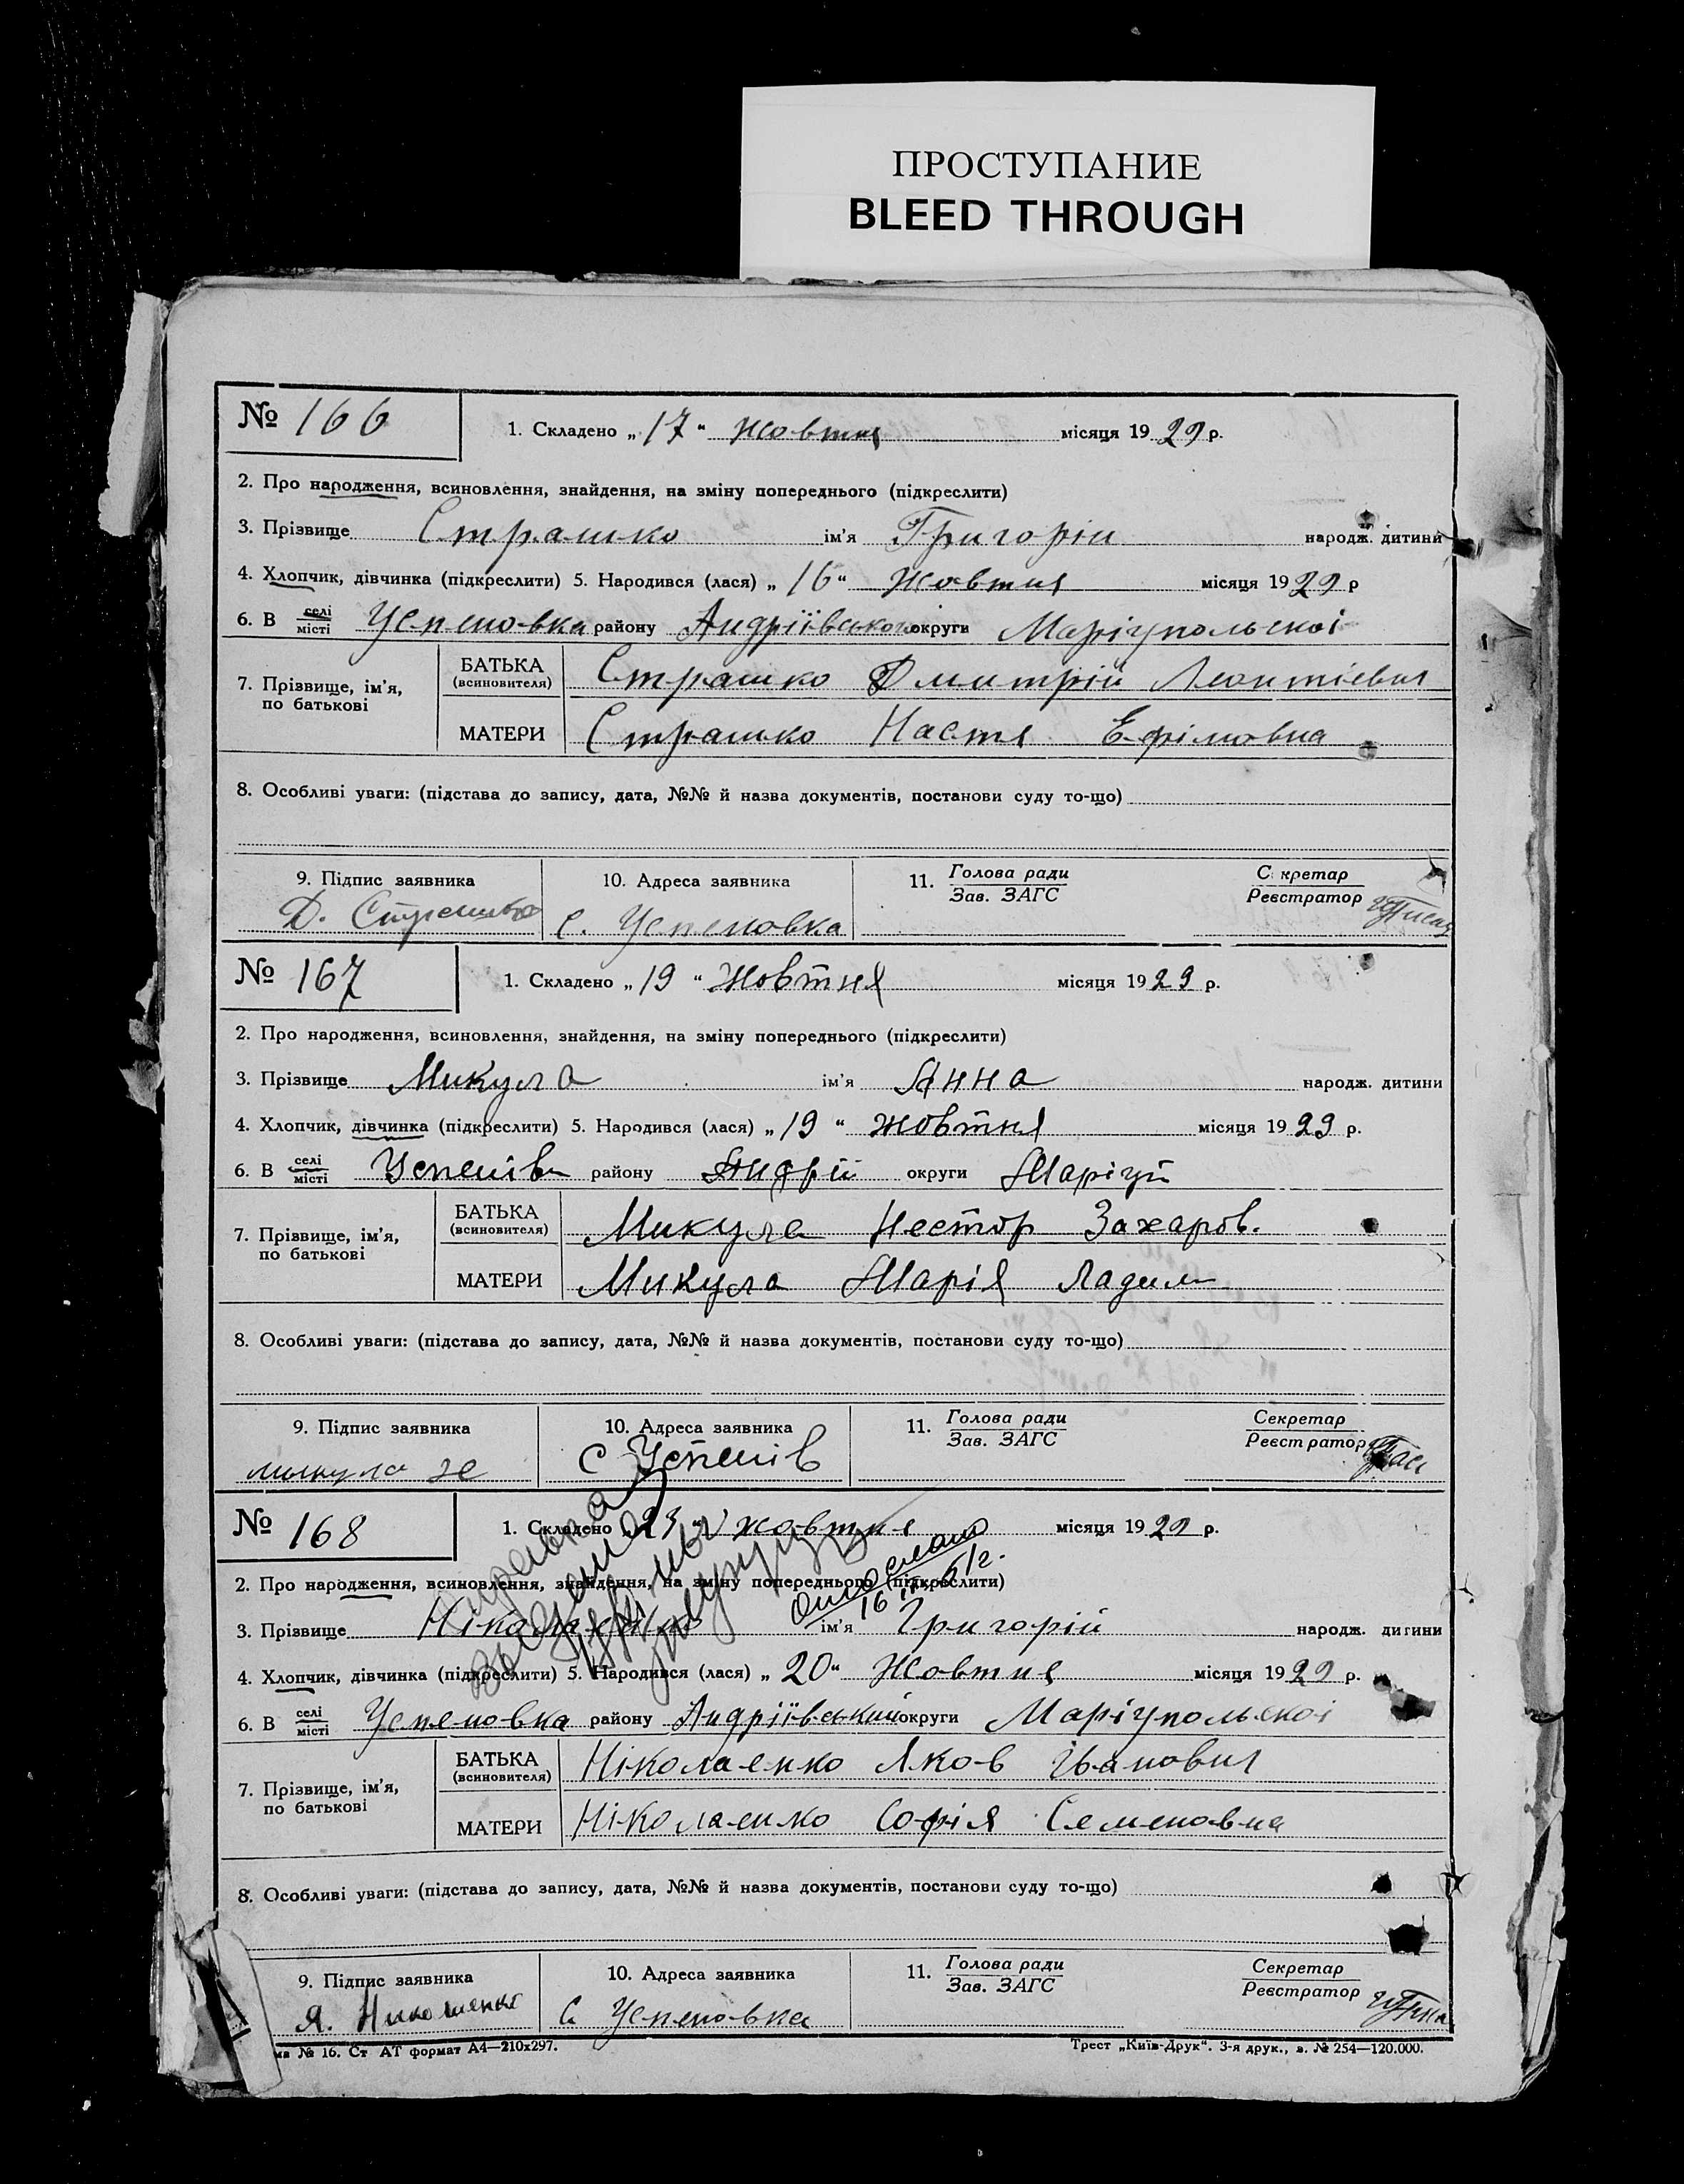 ПРОСТУПАНИЕ
BLEED THROUGH
№ 166
1. Складено „17“ жовтня місяця 1929 р.
2. Про народження, всиновлення, знайдення, на зміну попереднього (підкреслити)
3. Прізвище Страшко ім'я Григорій народж. дитини
4. Хлопчик, дівчинка (підкреслити) 5. Народився (лася) „16“ жовтня місяця 1929 р
6. В селі місті Успеновка району Андріївського округи Маріупольскоі
7. Прізвище, ім'я, по батькові
БАТЬКА (всиновителя) Страшко Дмитрій Леонтієвич
МАТЕРИ Страшко Настя Ефімовна
8. Особливі уваги: (підстава до запису, дата, №№ й назва документів, постанови суду то-що)
9. Підпис заявника 10. Адреса заявника 11. Голова ради Зав. ЗАГС Секретар Реєстратор
Д. Страшко с. Успеновка
№ 167
1. Складено „19“ жовтня місяця 1929 р.
2. Про народження, всиновлення, знайдення, на зміну попереднього (підкреслити)
3. Прізвище Микула ім'я Анна народж. дитини
4. Хлопчик, дівчинка (підкреслити) 5. Народився (лася) „19“ жовтня місяця 1929 р.
6. В селі місті Успенів району Андрій округи Маріуп
7. Прізвище, ім'я, по батькові
БАТЬКА (всиновителя) Микула Нестор Захаров.
МАТЕРИ Микула Марія
8. Особливі уваги: (підстава до запису, дата, №№ й назва документів, постанови суду то-що)
9. Підпис заявника 10. Адреса заявника 11. Голова ради Зав. ЗАГС Секретар Реєстратор
микула не с Успенів
№ 168
1. Складено „23“ жовтня місяця 1929 р.
2. Про народження, всиновлення, знайдення, на зміну попереднього (підкреслити)
3. Прізвище Ніколаенко ім'я Григорій народж. дитини
4. Хлопчик, дівчинка (підкреслити) 5. Народився (лася) „20“ жовтня місяця 1929 р.
6. В селі місті Успеновка району Андріївський округи Маріупольскоі
7. Прізвище, ім'я, по батькові
БАТЬКА (всиновителя) Ніколаенко Яков Іванович
МАТЕРИ Ніколаенко Софія Семеновна
8. Особливі уваги: (підстава до запису, дата, №№ й назва документів, постанови суду то-що)
9. Підпис заявника 10. Адреса заявника 11. Голова ради Зав. ЗАГС Секретар Реєстратор
Я. Николаенко с Успеновка
ма № 16. Ст АТ формат А4—210х297.
Трест „Київ-Друк“. 3-я друк., з. № 254—120.000.